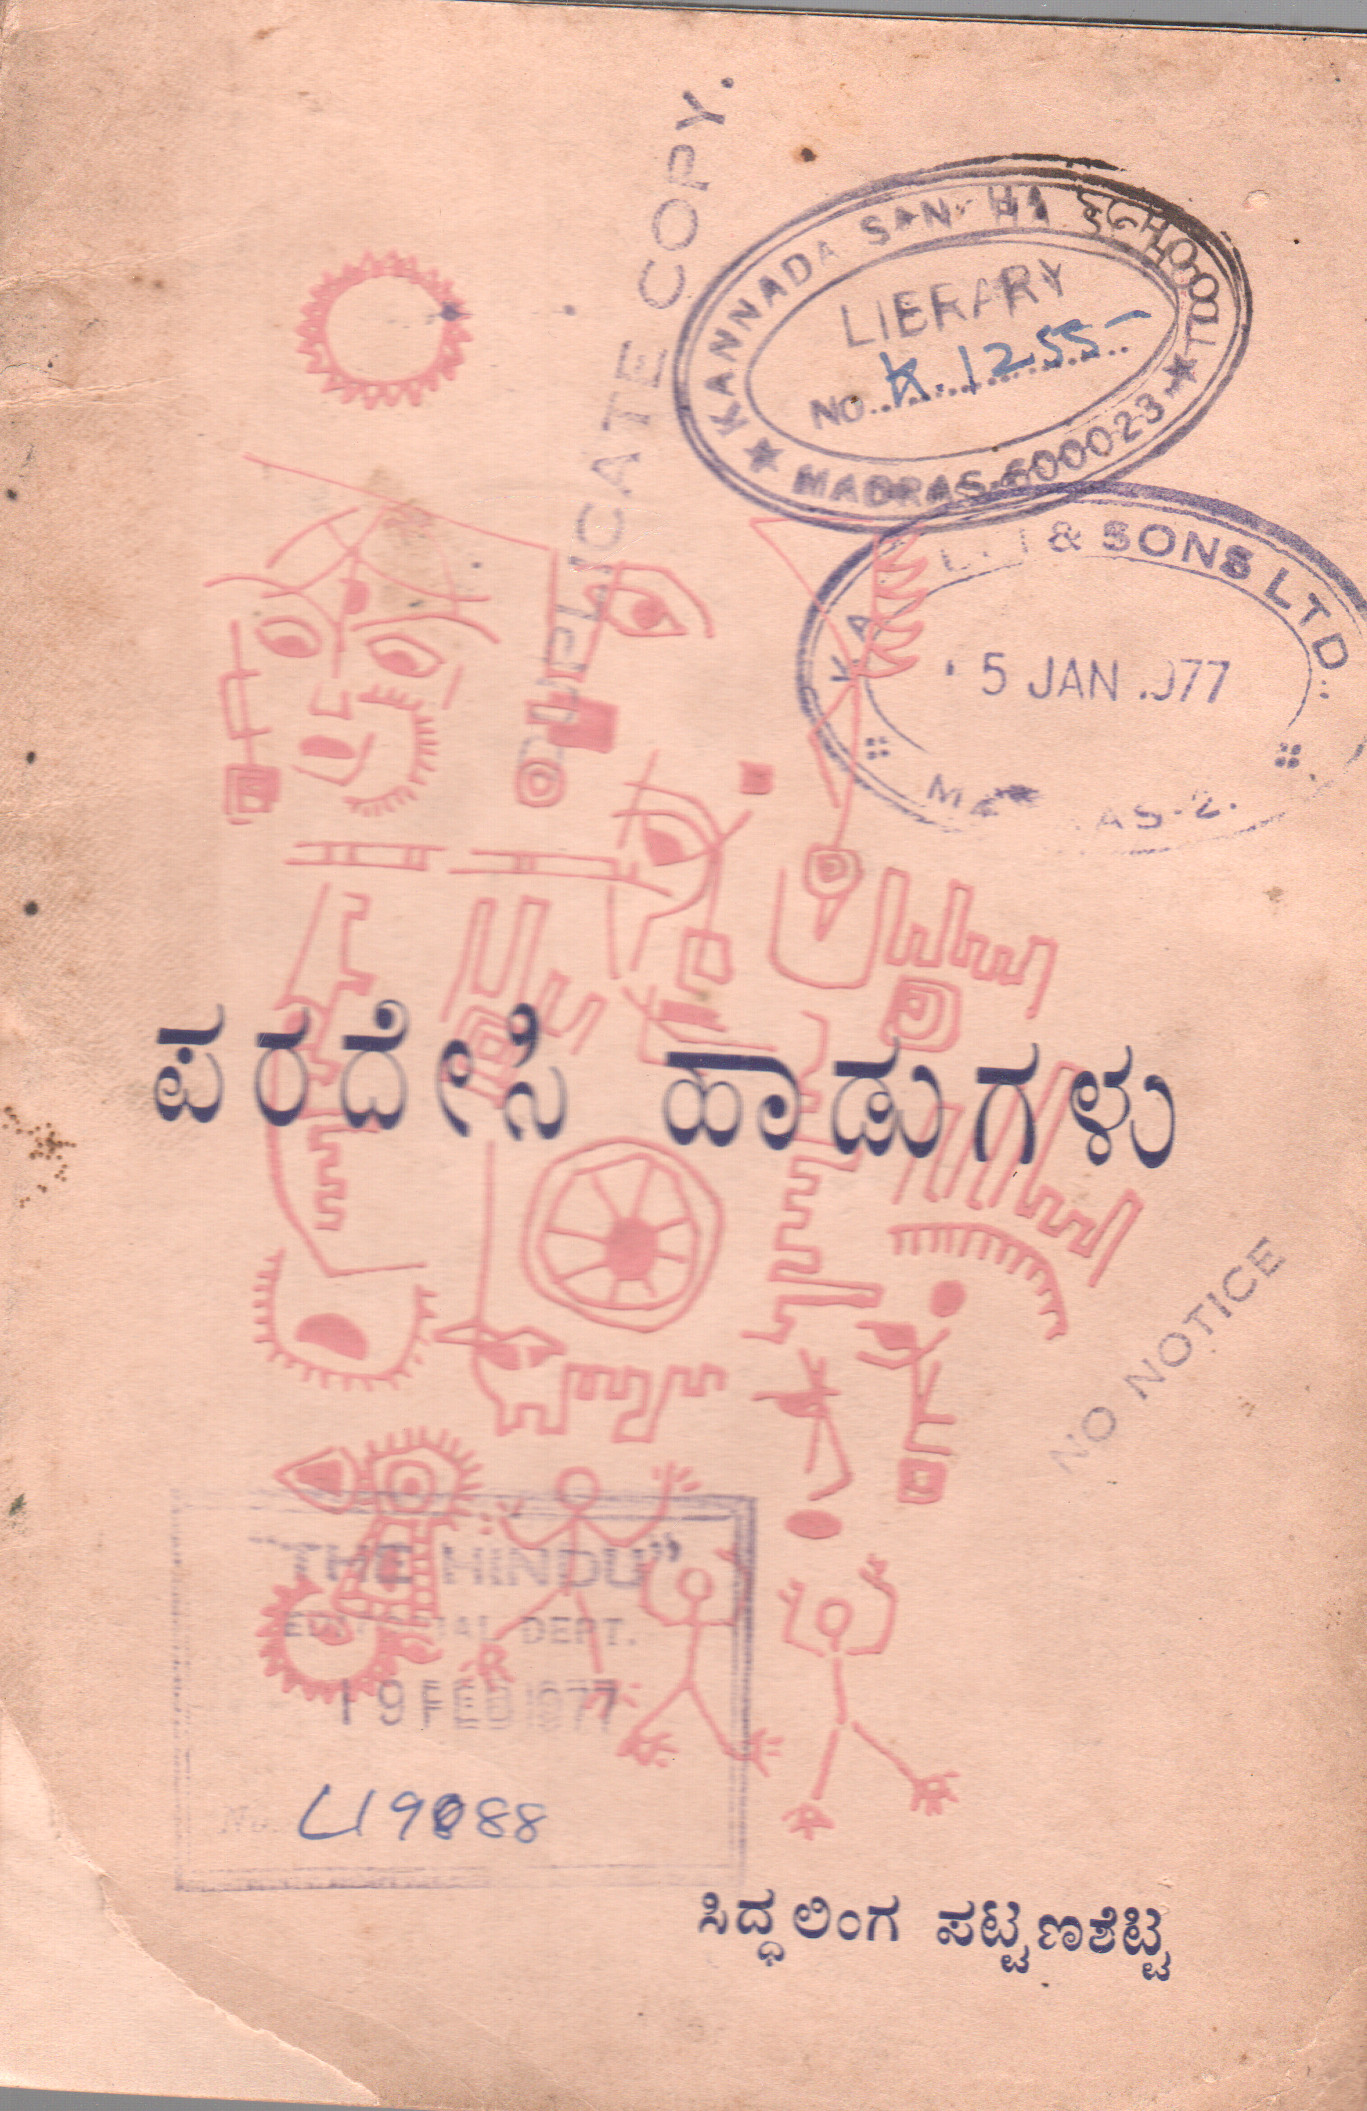 DUPLICATE COPY.
KANNADA SCHOOL
LIBRARY
NO. K. 1255
MADRAS-600023
& SONS LTD.
5 JAN 1977
ಪರದೇಸಿ ಹಾಡುಗಳು
NO NOTICE
"THE HINDU"
EDITORIAL DEPT.
19 FEB 1977
No.
ಸಿದ್ಧಲಿಂಗ ಪಟ್ಟಣಶೆಟ್ಟಿ